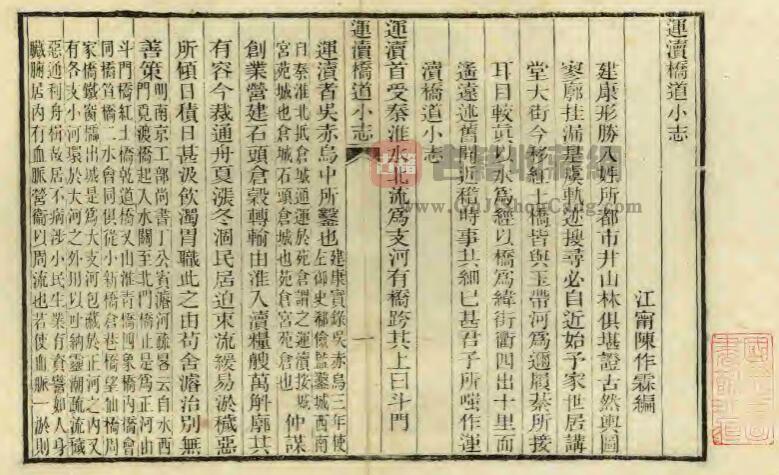 運瀆橋道小志
江甯陳作霖編
建康形勝八姓所都市井山林俱堪證古然輿圖
寥廓挂漏是虞軌迹搜尋必自近始予家世居講
堂大街今移紅土橋皆與玉帶河爲邇屐綦所接
耳目較眞以水爲經以橋爲緯街衢四出十里而
遙遠述舊聞近稽時事其細已甚君子所嗤作運
瀆橋道小志
運瀆首受秦淮水北流爲支河有橋跨其上曰斗門
運瀆橋道小志
一
運瀆者吳赤烏中所鑿也
建康實錄吳赤烏三年使
左御史郗儉監鑿城西南
自秦淮北抵倉城通運於苑倉謂之運瀆按
宮苑城也倉城石頭倉城也苑倉宮苑倉也
仲謀
創業營建石頭倉穀轉輸由淮入瀆糧艘萬斛廓其
有容今裁通舟夏漲冬涸民居迫束流緩易淤穢惡
所傾日積日甚汲飲濁胃職此之由苟舍濬治別無
善策
明南京工部尚書丁公賓濬河議畧云自水西
門覓渡橋起入水關至北門橋止是爲正河由
斗門橋紅土橋乾道橋又由淮青橋四象橋內橋會
同橋笪橋二水會同俱從小新橋倉巷橋望仙橋周
家橋鐵窗櫺出城是爲大支河包藏於正河之內又
有各支小河環於大河之外用以吐納靈潮疏流穢
惡通利舟楫故居不病涉小民生業有資譬如人身
臟腑居內有血脈營衛以周流也若使血脈一淤則
古籍收藏网
www.GuJiShouCang.com